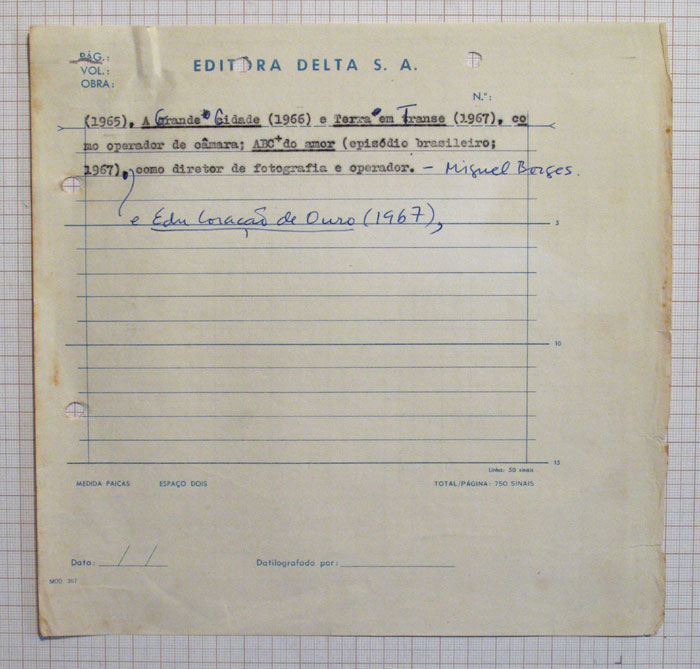 PÁG.:
VOL.:
OBRA:
EDITORA DELTA S. A.
N.º:
(1965), A Grande Cidade (1966) e Terra em Transe (1967), co
mo operador de câmara; ABC do amor (episódio brasileiro;
1967), como diretor de fotografia e operador. — Miguel Borges.
e Edu Coração de Ouro (1967),
5
10
15
Linha: 50 sinais
MEDIDA PAICAS ESPAÇO DOIS TOTAL/PÁGINA: 750 SINAIS
Data: / / Datilografado por: